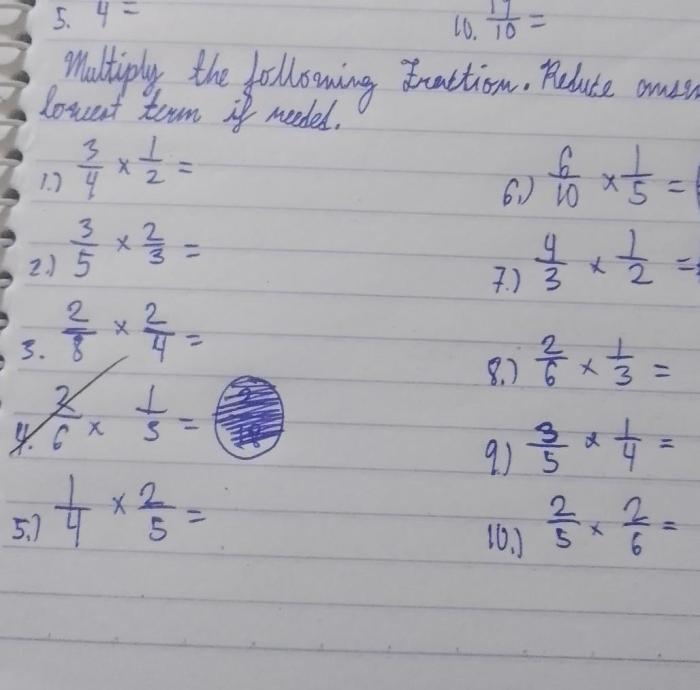 5. 4 =
10. 17/10 =
Multiply the following Fraction. Reduce
lowest term if needed.
1.) 3/4 × 1/2 =
2.) 3/5 × 2/3 =
3. 2/8 × 2/4 =
4. 2/6 × 1/3 =
5.) 1/4 × 2/5 =
6.) 6/10 × 1/5 =
7.) 4/3 × 1/2 =
8.) 2/6 × 1/3 =
9.) 3/5 × 1/4 =
10.) 2/5 × 2/6 =